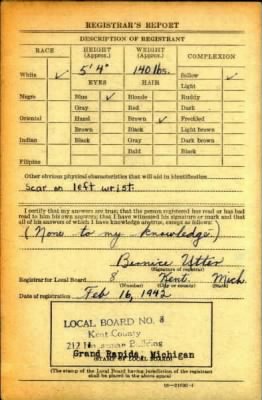 REGISTRAR'S REPORT
DESCRIPTION OF REGISTRANT
RACE HEIGHT (Approx.) WEIGHT (Approx.) COMPLEXION
White ✓ 5' 4" 140 lbs. Sallow ✓
EYES HAIR Light
Negro Blue ✓ Blonde Ruddy
Gray Red Dark
Oriental Hazel Brown ✓ Freckled
Brown Black Light brown
Indian Black Gray Dark brown
Bald Black
Filipino
Other obvious physical characteristics that will aid in identification
Scar on left wrist.
I certify that my answers are true; that the person registered has read or has had
read to him his own answers; that I have witnessed his signature or mark and that
all of his answers of which I have knowledge are true, except as follows:
(None to my knowledge)
Bernice Utter
(Signature of registrar)
Registrar for Local Board 8 Kent. Mich
(Number) (City or county) (State)
Date of registration Feb 16, 1942
LOCAL BOARD NO. 8
Kent County
212 Building
Grand Rapids, Michigan
STAMP OF LOCAL BOARD
(The stamp of the Local Board having jurisdiction of the registrant
shall be placed in the above space)